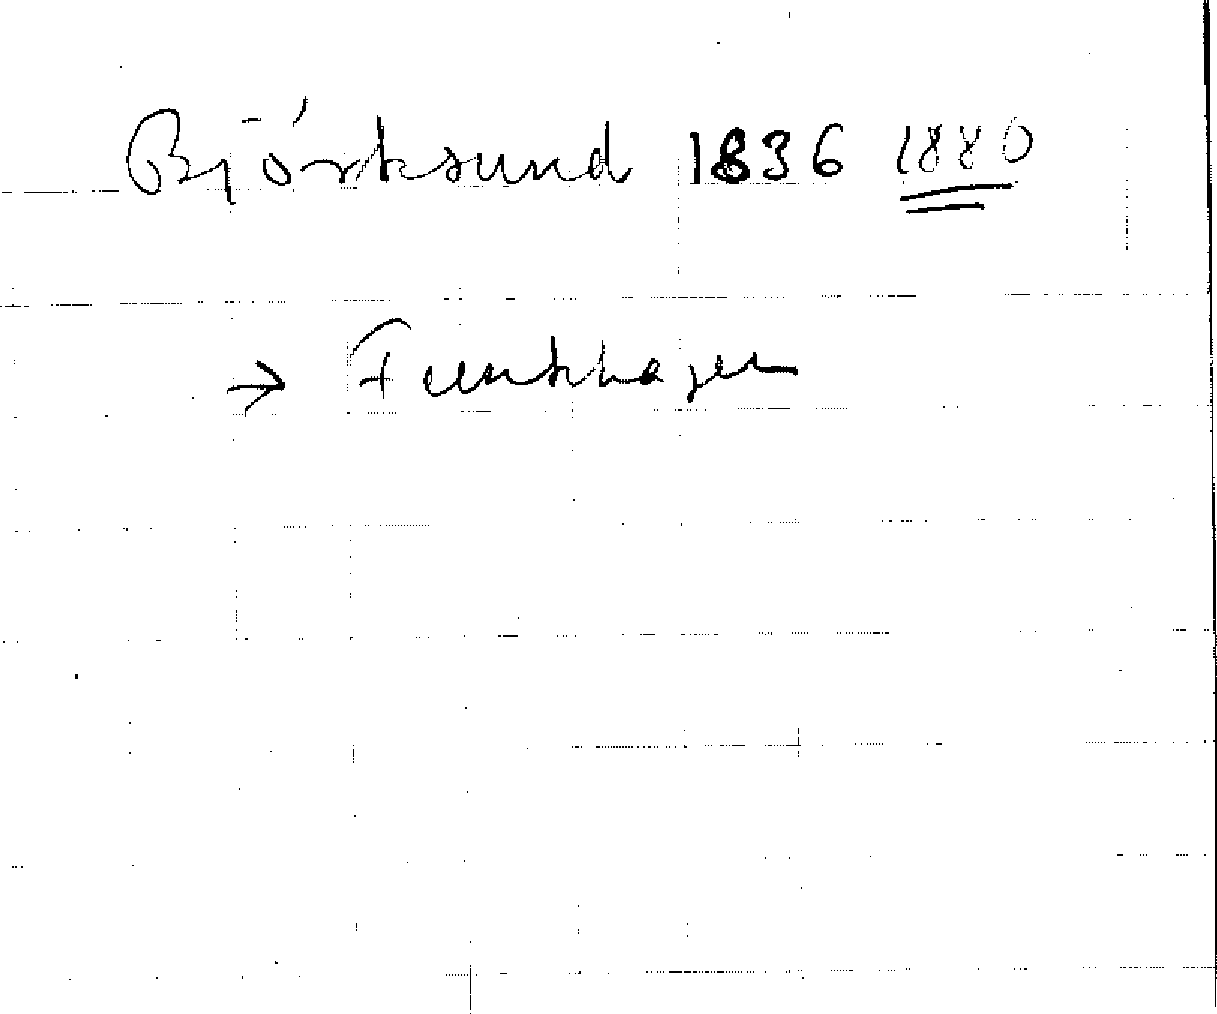 Björksund 1836 1880
→ Funkhagen